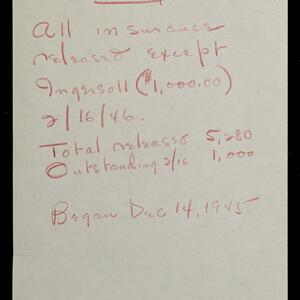 All insurance
released except
Ingersoll ($1,000.00)
2/16/46.
Total released 5,280
Outstanding 2/16 1,000
Began Dec 14, 1945